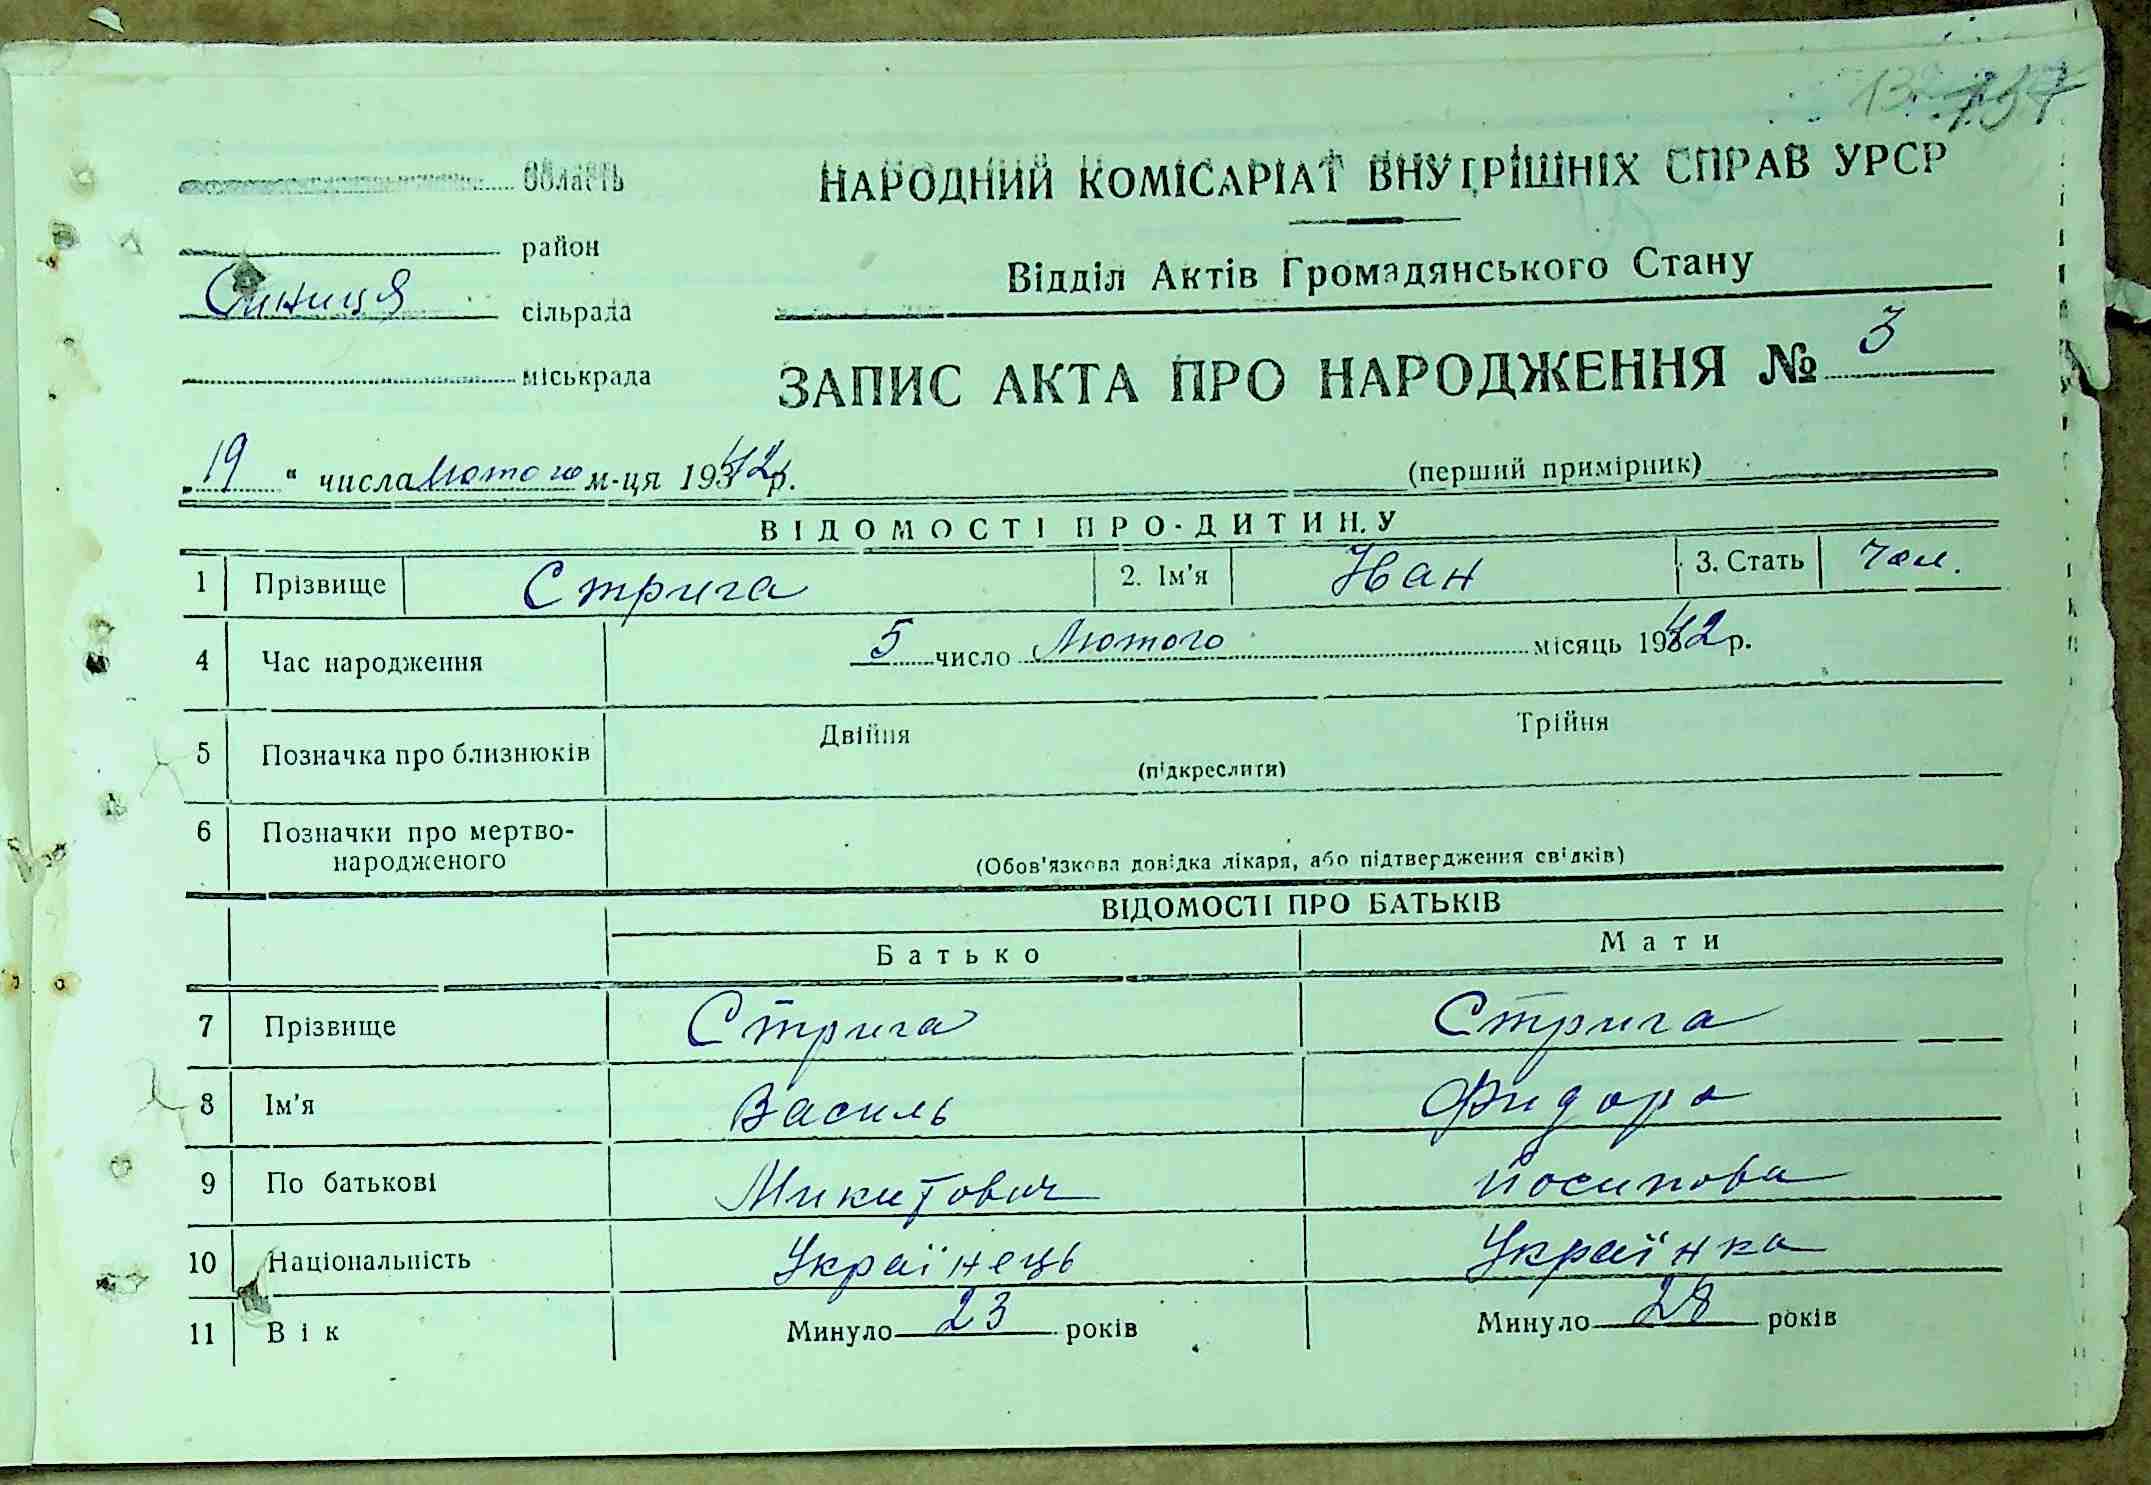 область
НАРОДНИЙ КОМІСАРІАТ ВНУТРІШНІХ СПРАВ УРСР
район
Відділ Актів Громадянського Стану
Синиця сільрада
міськрада
ЗАПИС АКТА ПРО НАРОДЖЕННЯ № 3
"19" числа лютого м-ця 1942 р.
(перший примірник)
ВІДОМОСТІ ПРО ДИТИНУ
1 Прізвище Стрига 2. Ім'я Іван 3. Стать чол.
4 Час народження 5 число Лютого місяць 1942 р.
5 Позначка про близнюків Двійня Трійня
(підкреслити)
6 Позначки про мертво-
народженого
(Обов'язкова довідка лікаря, або підтвердження свідків)
ВІДОМОСТІ ПРО БАТЬКІВ
Батько Мати
7 Прізвище Стрига Стрига
8 Ім'я Василь Фидора
9 По батькові Микитович Йосипова
10 Національність Українець Українка
11 Вік Минуло 23 років Минуло 28 років